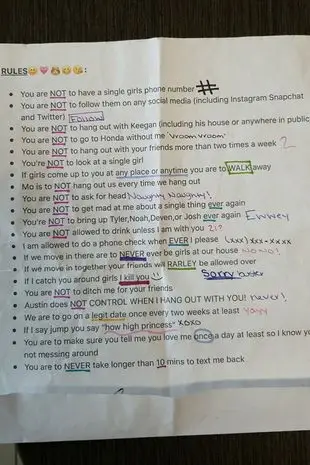 RULES😊💗😤😊😘:
You are NOT to have a single girls phone number #
You are NOT to follow them on any social media (including Instagram Snapchat
and Twitter) Follow
You are NOT to hang out with Keegan (including his house or anywhere in public)
You are NOT to go to Honda without me 'vroom vroom'
You are NOT to hang out with your friends more than two times a week 2
You're NOT to look at a single girl
If girls come up to you at any place or anytime you are to WALK away
Mo is to NOT hang out us every time we hang out
You are NOT to ask for head Naughty Naughty!
You are NOT to get mad at me about a single thing ever again
You're NOT to bring up Tyler,Noah,Deven,or Josh ever again Ewwey
You are NOT allowed to drink unless I am with you 21?
I am allowed to do a phone check when EVER I please (xxx)xxx-xxxx
If we move in there are to NEVER ever be girls at our house
If we move in together your friends will RARLEY be allowed over
If I catch you around girls I kill you Sorry
You are NOT to ditch me for your friends
Austin does NOT CONTROL WHEN I HANG OUT WITH YOU! never!
We are to go on a legit date once every two weeks at least Yayy
If I say jump you say "how high princess" xoxo
You are to make sure you tell me you love me once a day at least so I know you
not messing around
You are to NEVER take longer than 10 mins to text me back